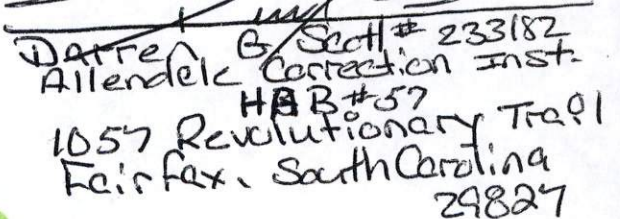 Darren G Scott # 233182
Allendele Correction Inst.
HAB #57
1057 Revolutionary Trail
Fairfax, South Carolina
29827